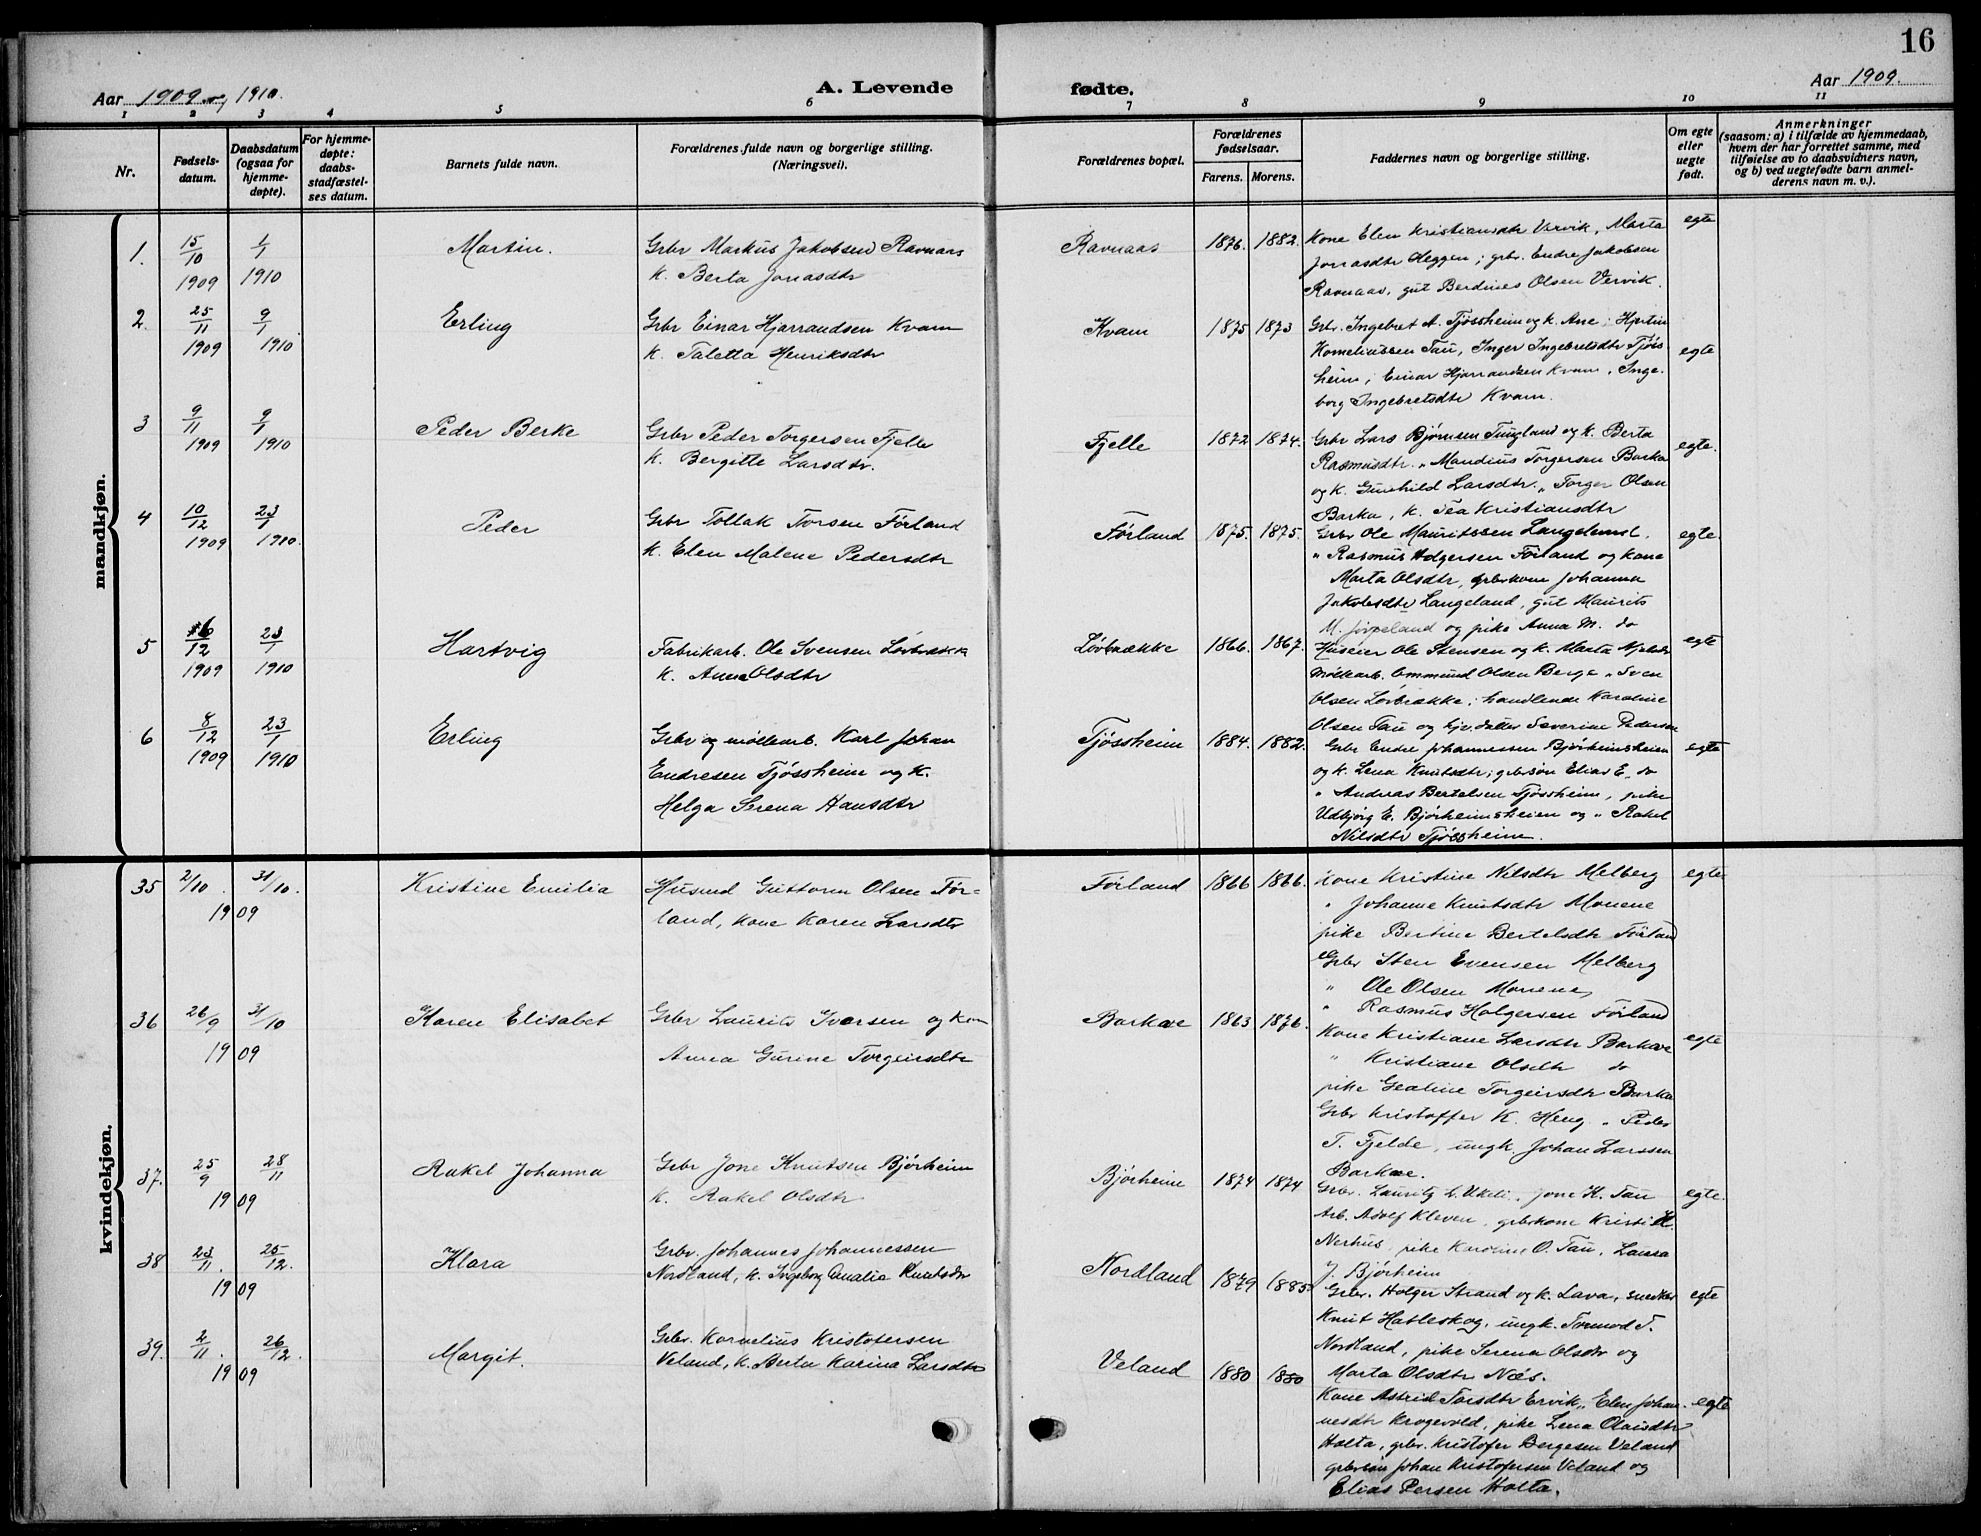 16
Aar 1909 og 1910.
A. Levende
fødte.
Aar 1909.
1 2 3 4 5 6 7 8 9 10 11
Nr.
Fødsels-
datum.
Daabsdatum
(ogsaa for
hjemme-
døpte).
For hjemme-
døpte:
daabs-
stadfæstel-
ses datum.
Barnets fulde navn.
Forældrenes fulde navn og borgerlige stilling.
(Næringsvei).
Forældrenes bopæl.
Forældrenes
fødselsaar.
Farens. Morens.
Faddernes navn og borgerlige stilling.
Om egte
eller
uegte
født.
Anmerkninger
(saasom: a) i tilfælde av hjemmedaab,
hvem der har forrettet samme, med
tilføielse av to daabsvidners navn,
og b) ved uegtefødte barn anmel-
derens navn m. v.).
mandkjøn.
1. 15/10 1909 1/1 1910 Martin.
Grbr Markus Jakobsen Ravnaas
k. Berta Jonasdtr
Ravnaas 1876. 1882.
Kone Elen Kristiansdtr Vervik, Marta
Jonasdtr Heggen; grbr. Endre Jakobsen
Ravnaas, gut Berdines Olsen Vervik.
egte
2. 25/11 1909 9/1 1910 Erling
Grbr Einar Hjarrandsen Kvam
k. Taletta Henriksdtr
Kvam 1875 1873
Grbr. Ingebret A. Tjøssheim og k. Ane;
Korneliussen Tau, Inger Ingebretsdtr Tjøss
heim; Einar Hjarrandsen Kvam, Inge-
borg Ingebretsdtr Kvam.
egte
3 9/11 1909 9/1 1910 Peder Berke
Grbr Peder Torgersen Fjelle
k. Bergitte Larsdtr.
Fjelle 1872 1874.
Grbr Lars Bjørnsen Tungland og k. Berta
Rasmusdtr. „ Mandius Torgersen Barka
og k. Gunhild Larsdtr. „ Torger Olsen
Barka, k. Tea Kristiansdtr
egte.
4 10/12 1909 23/1 1910. Peder
Grbr Tollak Torsen Førland
k. Elen Malene Pedersdtr
Førland 1875. 1875.
Grbr Ole Mauritssen Langeland.
„ Rasmus Holgersen Førland og kone
Marta Olsdtr, grbrkone Johanna
Jakobsdtr Langeland, gut Maurits
M. Jørpeland og pike Anna M. do
egte.
5 16/12 1909 23/1 1910 Hartvig
Fabrikarb. Ole Svensen Løvbrække
k. Anna Olsdtr
Løvbrække 1866. 1867.
Huseier Ole Stensen og k. Marta
Møllearb. Ommund Olsen Berge „ Sven
Olsen Løvbrække; handlende Karoline
Olsen Tau og hjv. datter Severine Pedersen
egte
6 8/12 1909 23/1 1910 Erling
Grbr og møllearb. Karl Johan
Endresen Tjøssheim og k.
Helga Serena Hansdtr
Tjøssheim 1884. 1882.
Grbr Endre Johannessen Bjørheimsheien
og k. Lena Knutsdtr; grbrsøn Elias E. do
„ Andreas Bertelsen Tjøssheim, pike
Udbjørg E. Bjørheimsheien og „ Rakel
Nilsdtr Tjøssheim.
egte
kvindekjøn.
35 2/10. 31/10. 1909 Kristine Emilia
Husmd Guttorm Olsen Før-
land, kone Karen Larsdtr
Førland 1866 1866.
Kone Kristine Nilsdtr Melberg
„ Johanne Knutsdtr Monene
pike Bertine Bertelsdtr Førland
Grbr Sten Evensen Melberg
„ Ole Olsen Monene,
„ Rasmus Holgersen Førland
egte
36 26/9 31/10 1909 Karen Elisabet
Grbr Laurits Iversen og kone
Anna Gurine Torgeirsdtr
Barkae 1863 1876.
Kone Kristiane Larsdtr Barkae
„ Kristiane Olsdtr do
pike Gealine Torgeirsdtr Barka
Grbr Kristoffer K. Heng „ Peder
T. Fjelde, ungk. Johan Larssen
Barkae.
egte
37. 25/9 28/11 1909 Rakel Johanna
Grbr Jone Knutsen Bjørheim
k. Rakel Olsdtr
Bjørheim 1874 1874
Grbr. Lauritz L. Ukeli. Jone K. Tau
Arb. Adolf Kleven, grbrkone Kristi K.
Nerhus, pike Karoline O. Tau, Laura
J. Bjørheim
egte.
38 23/11. 25/12. 1909 Klara
Grbr. Johannes Johannessen
Nordland, k. Ingeborg Amalia Knutsdtr
Nordland 1879 1885
Grbr. Holger Strand og k. Lava, snedker
Knut Hatleskog, ungk. Tormod T.
Nordland, pike Serena Olsdtr og
Marta Olsdtr Næs.
egte
39. 2/11. 26/12. 1909 Margit.
Grbr. Kornelius Kristofersen
Veland, k. Berta Karina Larsdtr
Veland 1880 1880
Kone Astrid Torsdtr Ervik, „ Elen Johan-
nesdtr Krogevold, pike Lena Olausdtr
Holta, grbr. Kristofer Bergesen Veland
grbrsøn Johan Kristofersen Veland og
Elias Persen Holta.
egte